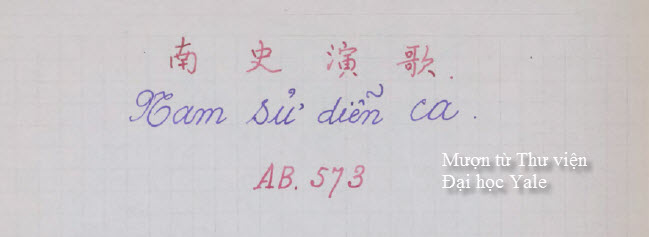 南史演歌.
Nam sử diễn ca.
AB. 573
Mượn từ Thư viện
Đại học Yale